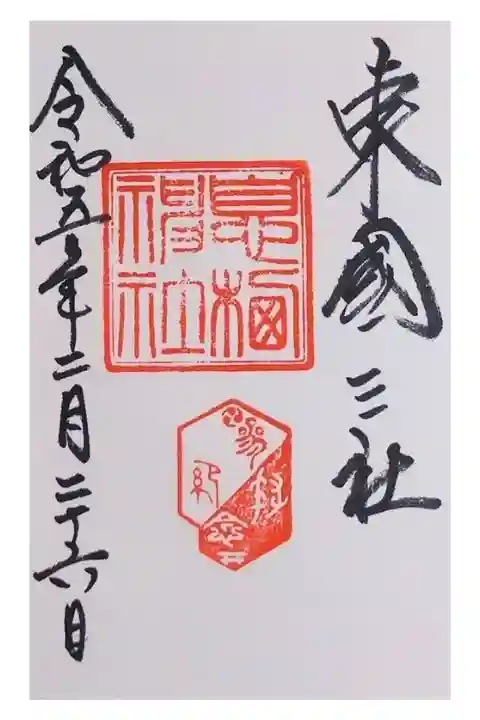 東國三社
息栖
神社
令和五年二月二十六日